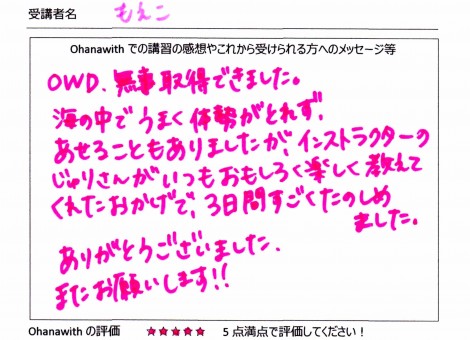 受講者名 もえこ
Ohanawith での講習の感想やこれから受けられる方へのメッセージ等
OWD、無事取得できました。
海の中でうまく体勢がとれず、
あせることもありましたが、インストラクターの
じゅりさんがいつもおもしろく楽しく教えて
くれたおかげで、3日間すごくたのしめ
ました。
ありがとうございました。
またお願いします!!
Ohanawith の評価 ★★★★★ 5 点満点で評価してください！